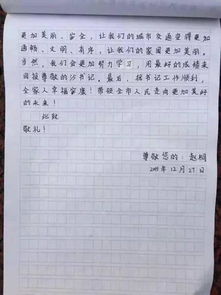 更加美丽、安全,让我们的城市交通变得更加
通畅、文明、有序,让我们的家园更加美丽。
当然,我们会更加努力学习,用最好的成绩来
回报尊敬的书记。最后,祝书记工作顺利,
全家人幸福安康!带领全市人民走向更加美好
的未来!
此致
敬礼!
尊敬您的:赵桐
2019年12月27日